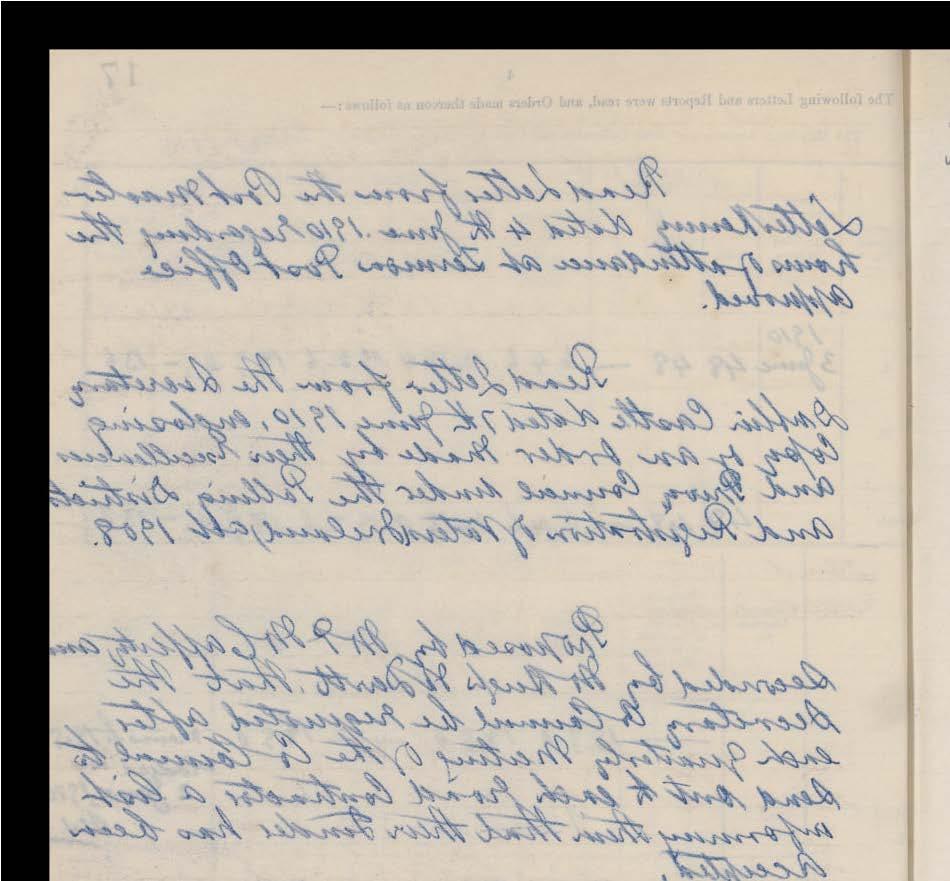 17
4
The following Letters and Reports were read, and Orders made thereon as follows:—
Read Letter from the Post Master
Letterkenny dated 4th June 1910 regarding the
hours of attendance at Termon Post Office
approved.
Read Letter from the Secretary
Dublin Castle dated 7th June 1910, enclosing
Copy of an order made by their Excellencies
and Privy Council under the Polling Districts
and Registration of Voters Ireland Act 1908.
Proposed by Mr P McCafferty and
Seconded by Mr Hugh that the
Secretary Co Council be requested after
each Quarterly Meeting of the Co Council to
send out to each Contractor a list
informing them that their Tender has been
accepted.
1910
3 June 48 48